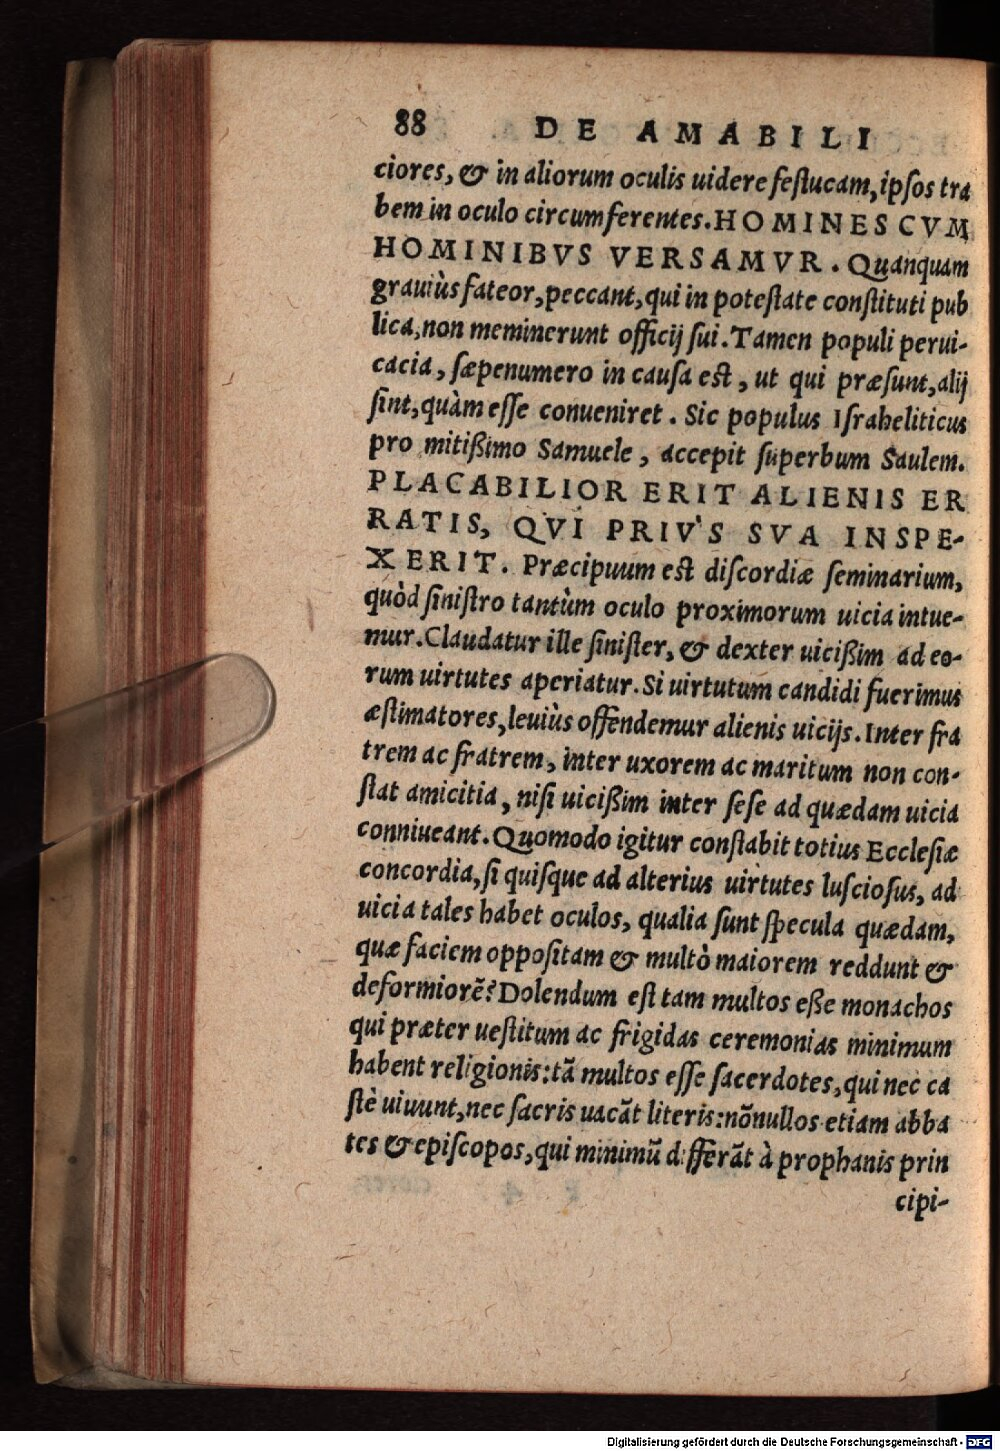 88 DE AMABILI
ciores, & in aliorum oculis uidere festucam, ipsos tra
bem in oculo circumferentes. HOMINES CVM
HOMINIBVS VERSAMVR. Quanquam
grauiùs fateor, peccant, qui in potestate constituti pub
lica, non meminerunt officij sui. Tamen populi perui-
cacia, sæpenumero in causa est, ut qui præsunt, alij
sint, quàm esse conueniret. Sic populus Israheliticus
pro mitißimo Samuele, accepit superbum Saulem.
PLACABILIOR ERIT ALIENIS ER
RATIS, QVI PRIV'S SVA INSPE-
XERIT. Præcipuum est discordiæ seminarium,
quòd sinistro tantùm oculo proximorum uicia intue-
mur. Claudatur ille sinister, & dexter uicißim ad eo-
rum uirtutes aperiatur. Si uirtutum candidi fuerimus
æstimatores, leuiùs offendemur alienis uicijs. Inter fra
trem ac fratrem, inter uxorem ac maritum non con-
stat amicitia, nisi uicißim inter sese ad quædam uicia
conniueant. Quomodo igitur constabit totius Ecclesiæ
concordia, si quisque ad alterius uirtutes lusciosus, ad
uicia tales habet oculos, qualia sunt specula quædam,
quæ faciem oppositam & multò maiorem reddunt &
deformiorẽ? Dolendum est tam multos eße monachos
qui præter uestitum ac frigidas ceremonias minimum
habent religionis: tã multos esse sacerdotes, qui nec ca
stè uiuunt, nec sacris uacãt literis: nõnullos etiam abba
tes & episcopos, qui minimũ differãt à prophanis prin
cipi-
Digitalisierung gefördert durch die Deutsche Forschungsgemeinschaft - DFG